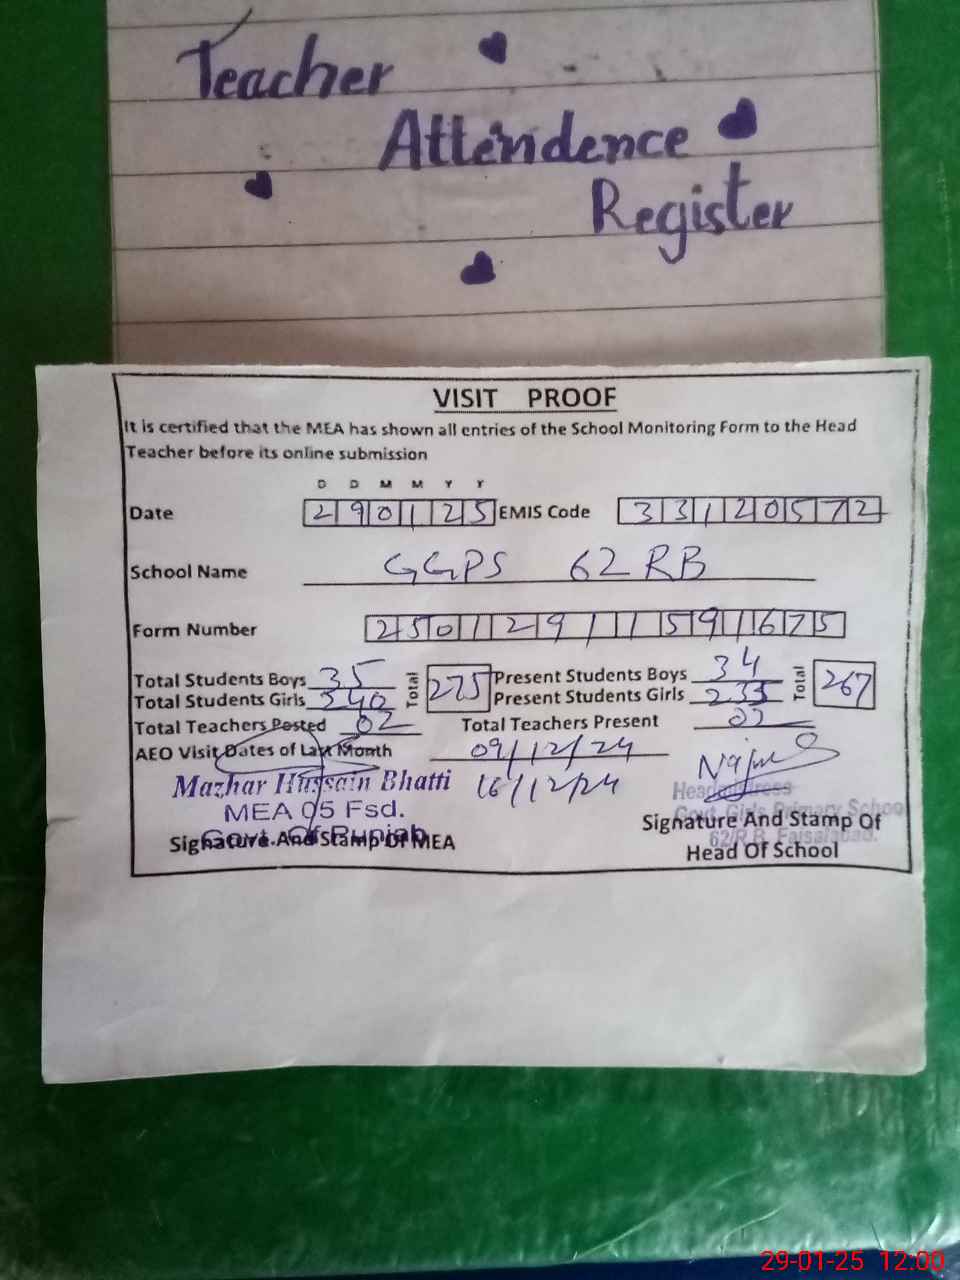 Teacher
Attendence
Register
VISIT PROOF
It is certified that the MEA has shown all entries of the School Monitoring Form to the Head
Teacher before its online submission
D D M M Y Y
Date 290125 EMIS Code 33120572
School Name GGPS 62 RB
Form Number 25012911591675
Total Students Boys 35 Total 275 Present Students Boys 34 Total 267
Total Students Girls 240 Present Students Girls 233
Total Teachers Posted 02 Total Teachers Present 02
AEO Visit Dates of Last Month 09/12/24
16/12/24
Mazhar Hussain Bhatti
MEA 05 Fsd.
Govt. Of Punjab
Signature And Stamp Of MEA
Headmistress
Govt. Girls Primary School
62/R.B. Faisalabad.
Signature And Stamp Of
Head Of School
29-01-25 12:00